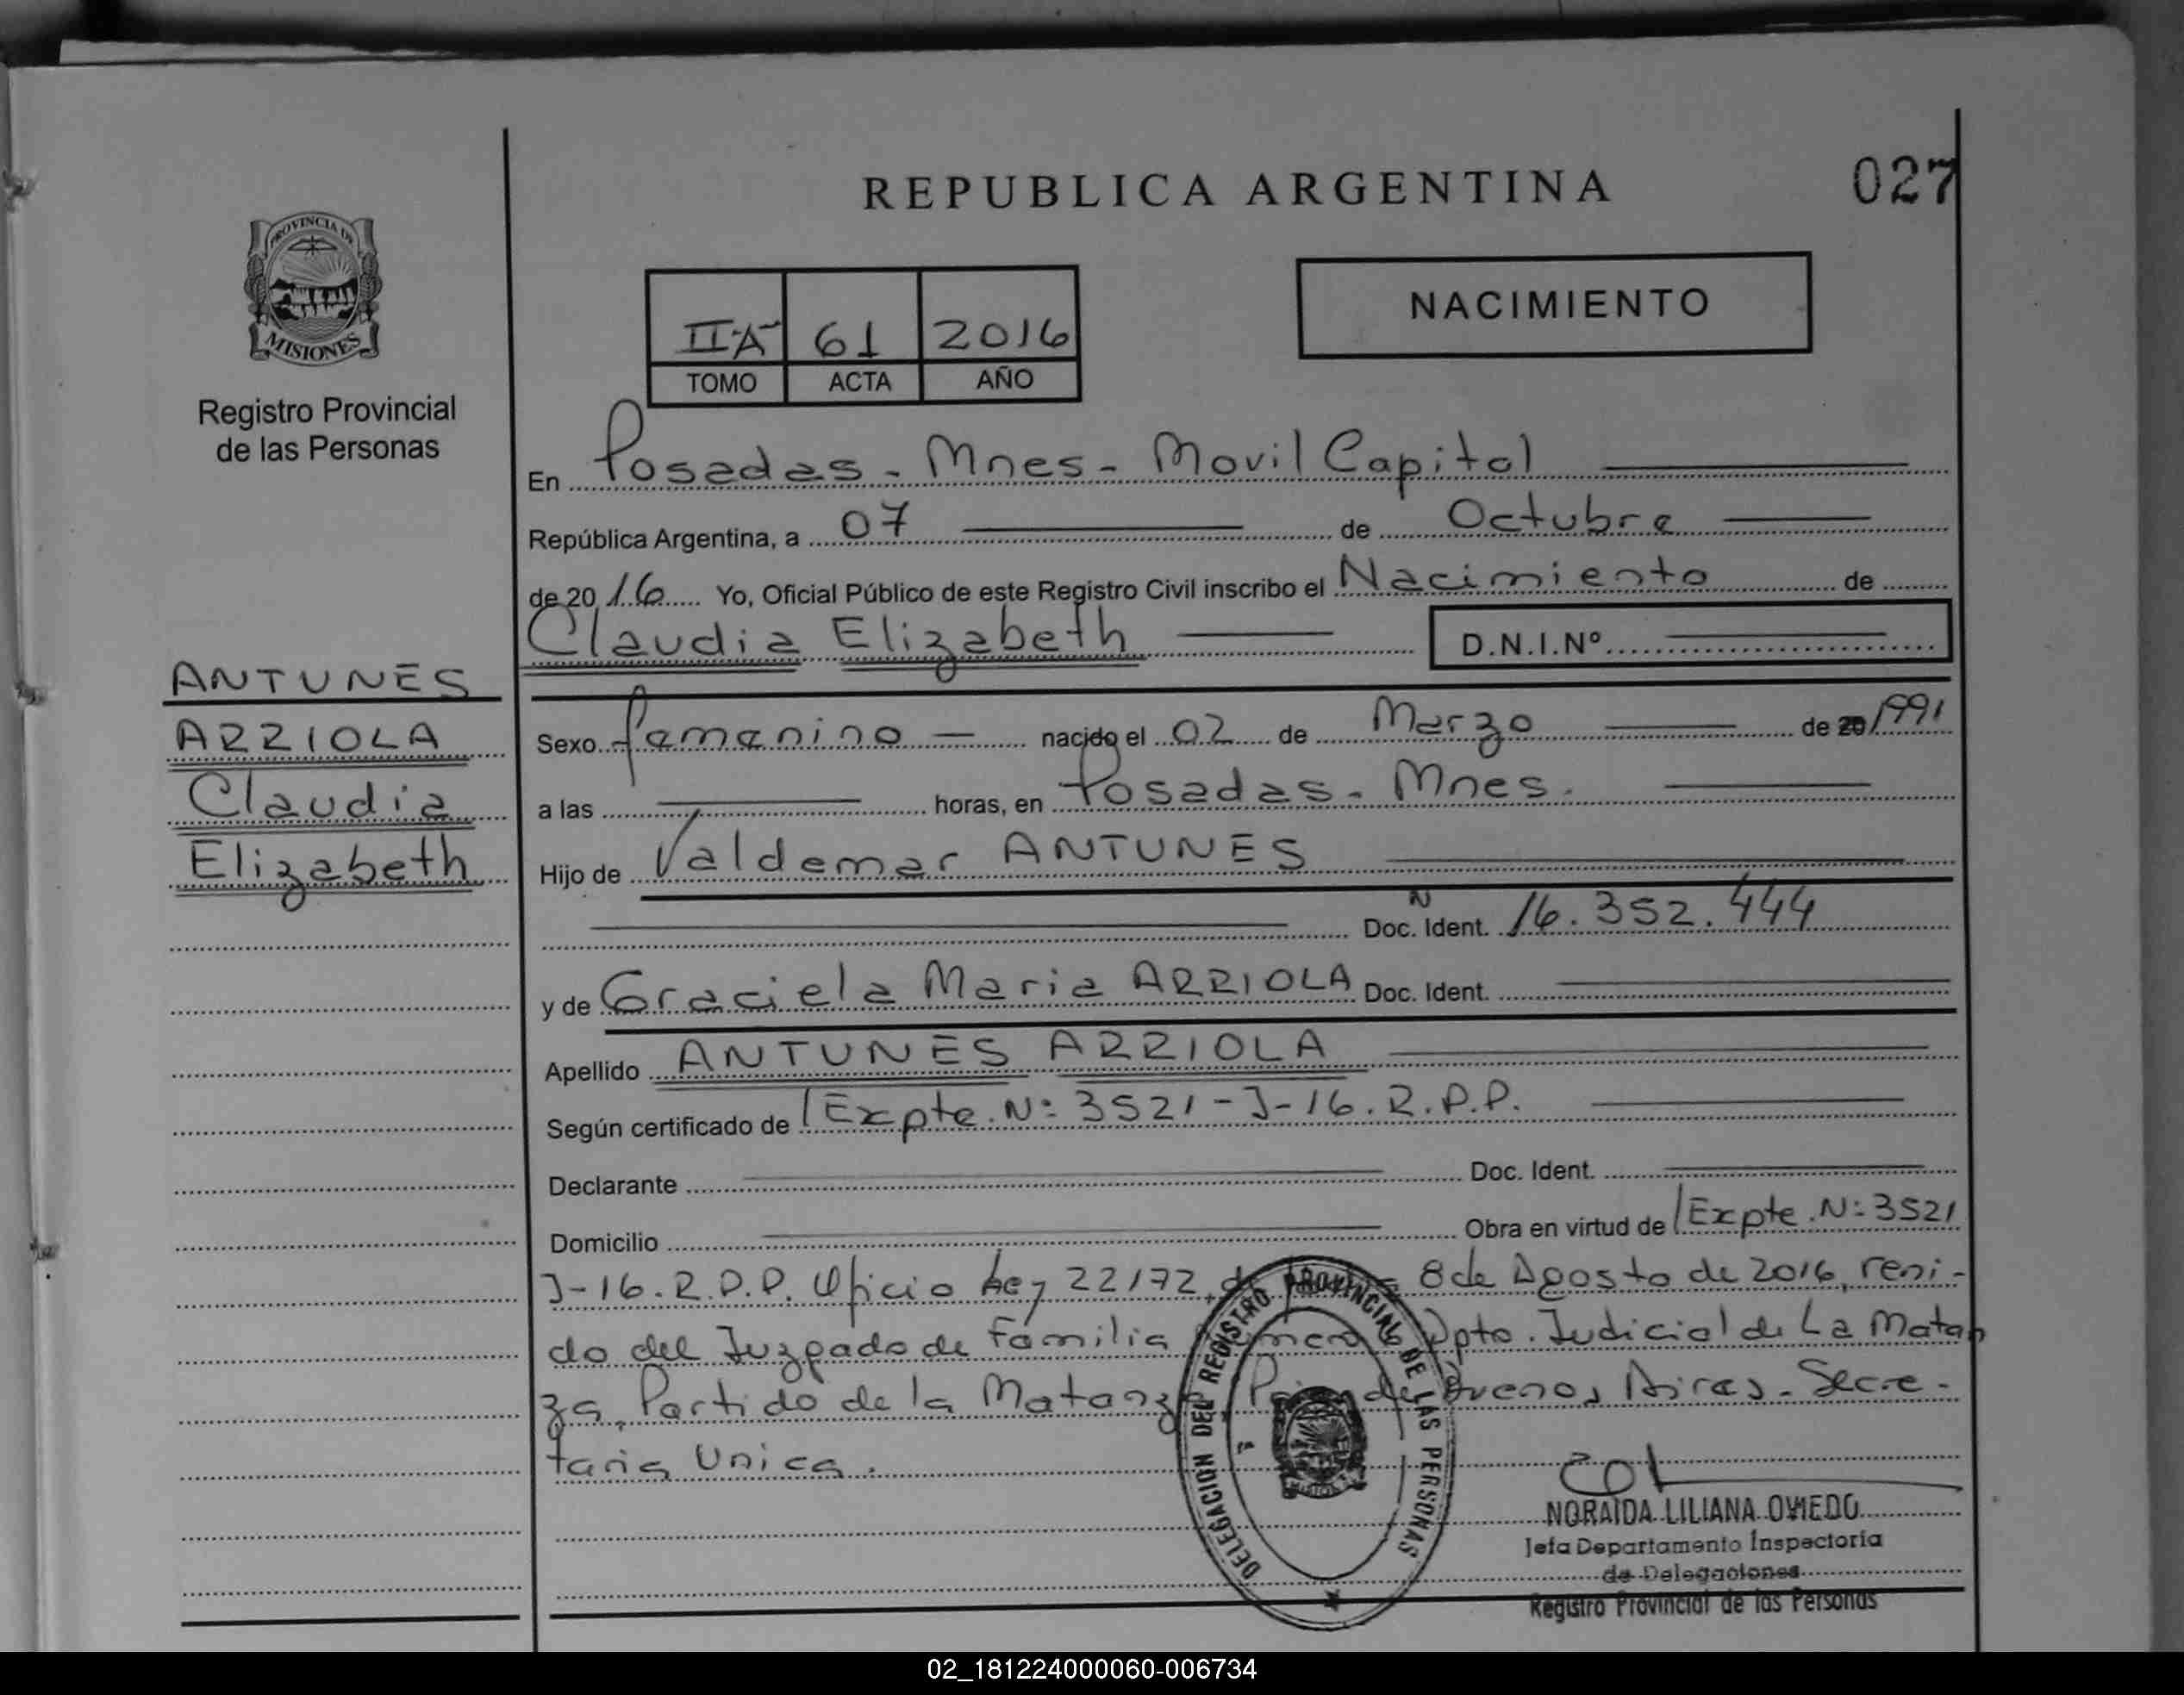 REPUBLICA ARGENTINA
027
PROVINCIA DE
MISIONES
Registro Provincial
de las Personas
II-A 61 2016
TOMO ACTA AÑO
NACIMIENTO
En Posadas - Mnes - Movil Capital
República Argentina, a 07 de Octubre
de 2016 Yo, Oficial Público de este Registro Civil inscribo el Nacimiento de
Claudia Elizabeth D.N.I.Nº
ANTUNES
ARRIOLA
Claudia
Elizabeth
Sexo femenino nacido el 02 de Marzo de 20 1991
a las horas, en Posadas - Mnes.
Hijo de Valdemar ANTUNES
N
Doc. Ident. 16.352.444
y de Graciela Maria ARRIOLA Doc. Ident.
Apellido ANTUNES ARRIOLA
Según certificado de Expte. Nº 3521-J-16. R.P.P.
Declarante Doc. Ident.
Domicilio Obra en virtud de Expte. Nº 3521
J-16. R.P.P. Oficio Ley 22172, 8 de Agosto de 2016, reni-
do del Juzgado de Familia Dpto. Judicial de La Matan
za, Partido de la Matanza de Buenos Aires - Secre-
taria Unica.
DELEGACION DEL REGISTRO PROVINCIAL DE LAS PERSONAS
NORAIDA LILIANA OVIEDO
Jefa Departamento Inspectoría
de Delegaciones
Registro Provincial de las Personas
02_181224000060-006734